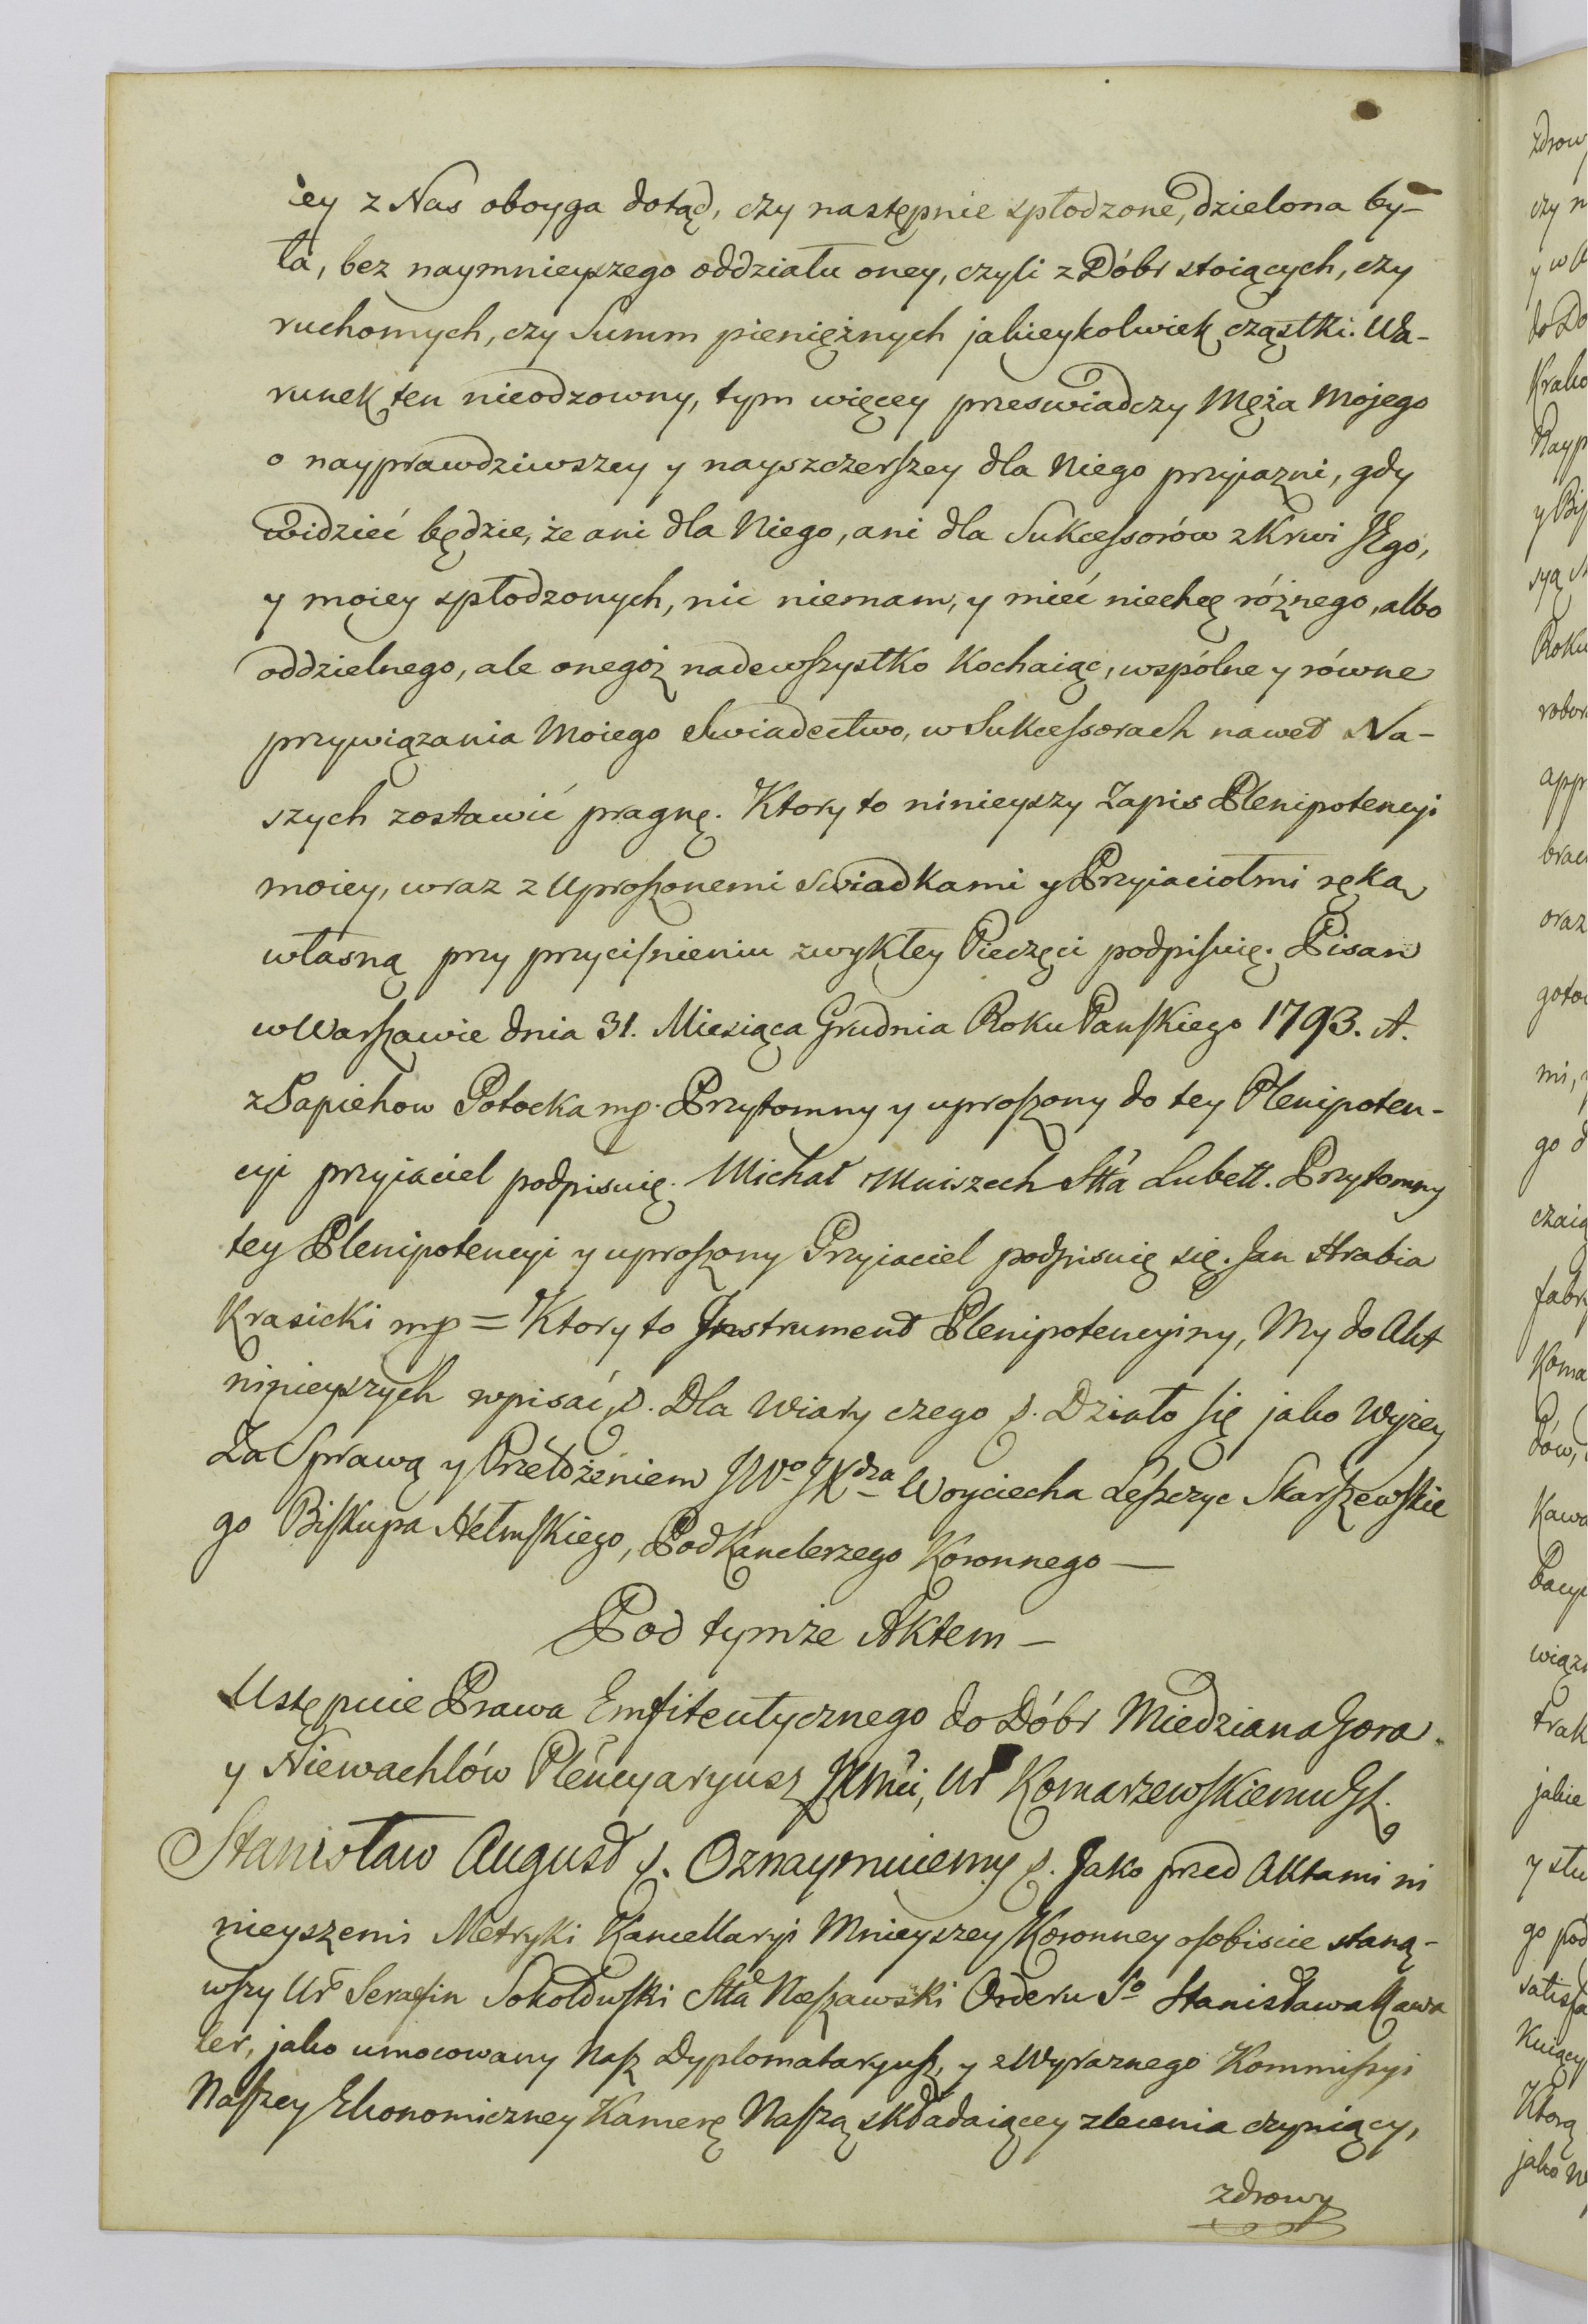 iey z Nas oboyga dotąd, czy następnie spłodzone, dzielona by-
ła, bez naymnieyszego oddziału oney, czyli z Dóbr stoiących, czy
ruchomych, czy Summ pieniężnych jakieykolwiek cząstki. Wa-
runek ten nieodzowny, tym więcey preswiadczy Męża Mojego
o nayprawdziwszey y nayszczerszey dla Niego przyiazni, gdy
widzieć będzie, że ani dla Niego, ani dla Sukcessorów z Krwi JEgo,
y moiey spłodzonych, nic niemam, y mieć niechcę różnego, albo
oddzielnego, ale onegoż nadewszystko Kochaiąc, wspólne y równe
przywiązania Moiego Swiadectwo, w Sukcessorach nawet Na-
szych zostawić pragnę. Ktory to ninieyszy Zapis Plenipotencyi
moiey, wraz z Uproszonemi Swiadkami y Przyiaciołmi ręką
własną przy przyciśnieniu zwykłey Pieczęci podpisuię. Pisan
w Warszawie dnia 31. Miesiąca Grudnia Roku Pańskiego 1793. A.
z Sapiehow Potocka mp. Przytomny y uproszony do tey Plenipoten-
cyi przyiaciel podpisuię. Michał Mniszech Stta Lubett. Przytomny
tey Plenipotencyi y uproszony Przyiaciel podpisuię się. Jan Hrabia
Krasicki mp = Ktory to Instrument Plenipotencyiny, My do Akt
ninieyszych wpisać, p. Dla Wiary czego p. Działo się jako Wyżey
Za Sprawą y Przełożeniem JWo JXdza Woyciecha Leszczyc Skarszewskie
go Biskupa Hełmskiego, Pod Kanclerzego Koronnego —
Pod tymże Aktem —
Ustępuie Prawa Emfiteutycznego do Dóbr Miedziana Gora
y Niewachlów Plencyaryusz JKMci, Ur Komarzewskiemu GL.
Stanisław August p. Oznaymuiemy p. Jako przed Aktami ni
nieyszemi Metryki Kancellaryi Mnieyszey Koronney osobiscie staną-
wszy Ur Serafin Sokołowski Stta Nieszawski Orderu So Stanisława Kawa
ler, jako umocowany Nasz Dyplomataryusz, y z Wyraznego Kommissyi
Naszey Ekonomiczney Kamerę Naszą składaiącey zlecenia czyniący,
zdrowy